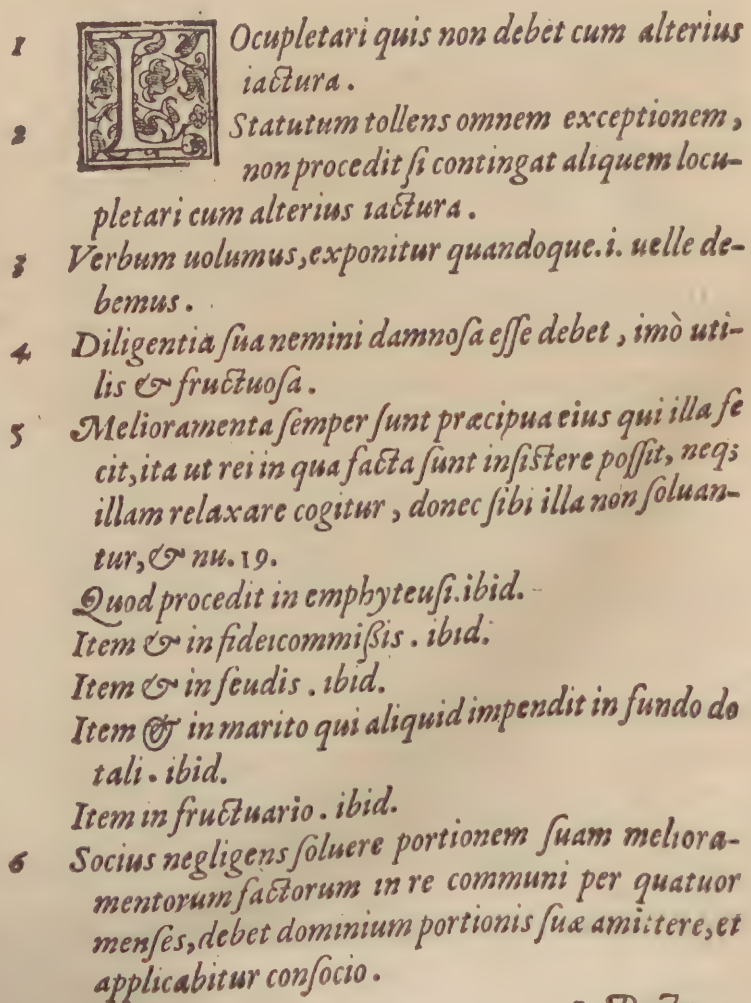 1 LOcupletari quis non debet cum alterius
iactura.
2 Statutum tollens omnem exceptionem,
non procedit ſi contingat aliquem locu-
pletari cum alterius iactura.
3 Verbum uolumus, exponitur quandoque .i. uelle de-
bemus.
4 Diligentia ſua nemini damnoſa eſſe debet, imò uti-
lis & fructuoſa.
5 Melioramenta ſemper ſunt præcipua eius qui illa fe
cit, ita ut rei in qua facta ſunt inſiſtere poſſit, neq;
illam relaxare cogitur, donec ſibi illa non ſoluan-
tur, & nu. 19.
Quod procedit in emphyteuſi. ibid.
Item & in fideicommiſſis. ibid.
Item & in feudis. ibid.
Item & in marito qui aliquid impendit in fundo do
tali. ibid.
Item in fructuario. ibid.
6 Socius negligens ſoluere portionem ſuam meliora-
mentorum factorum in re communi per quatuor
menſes, debet dominium portionis ſuæ amittere, et
applicabitur conſocio.